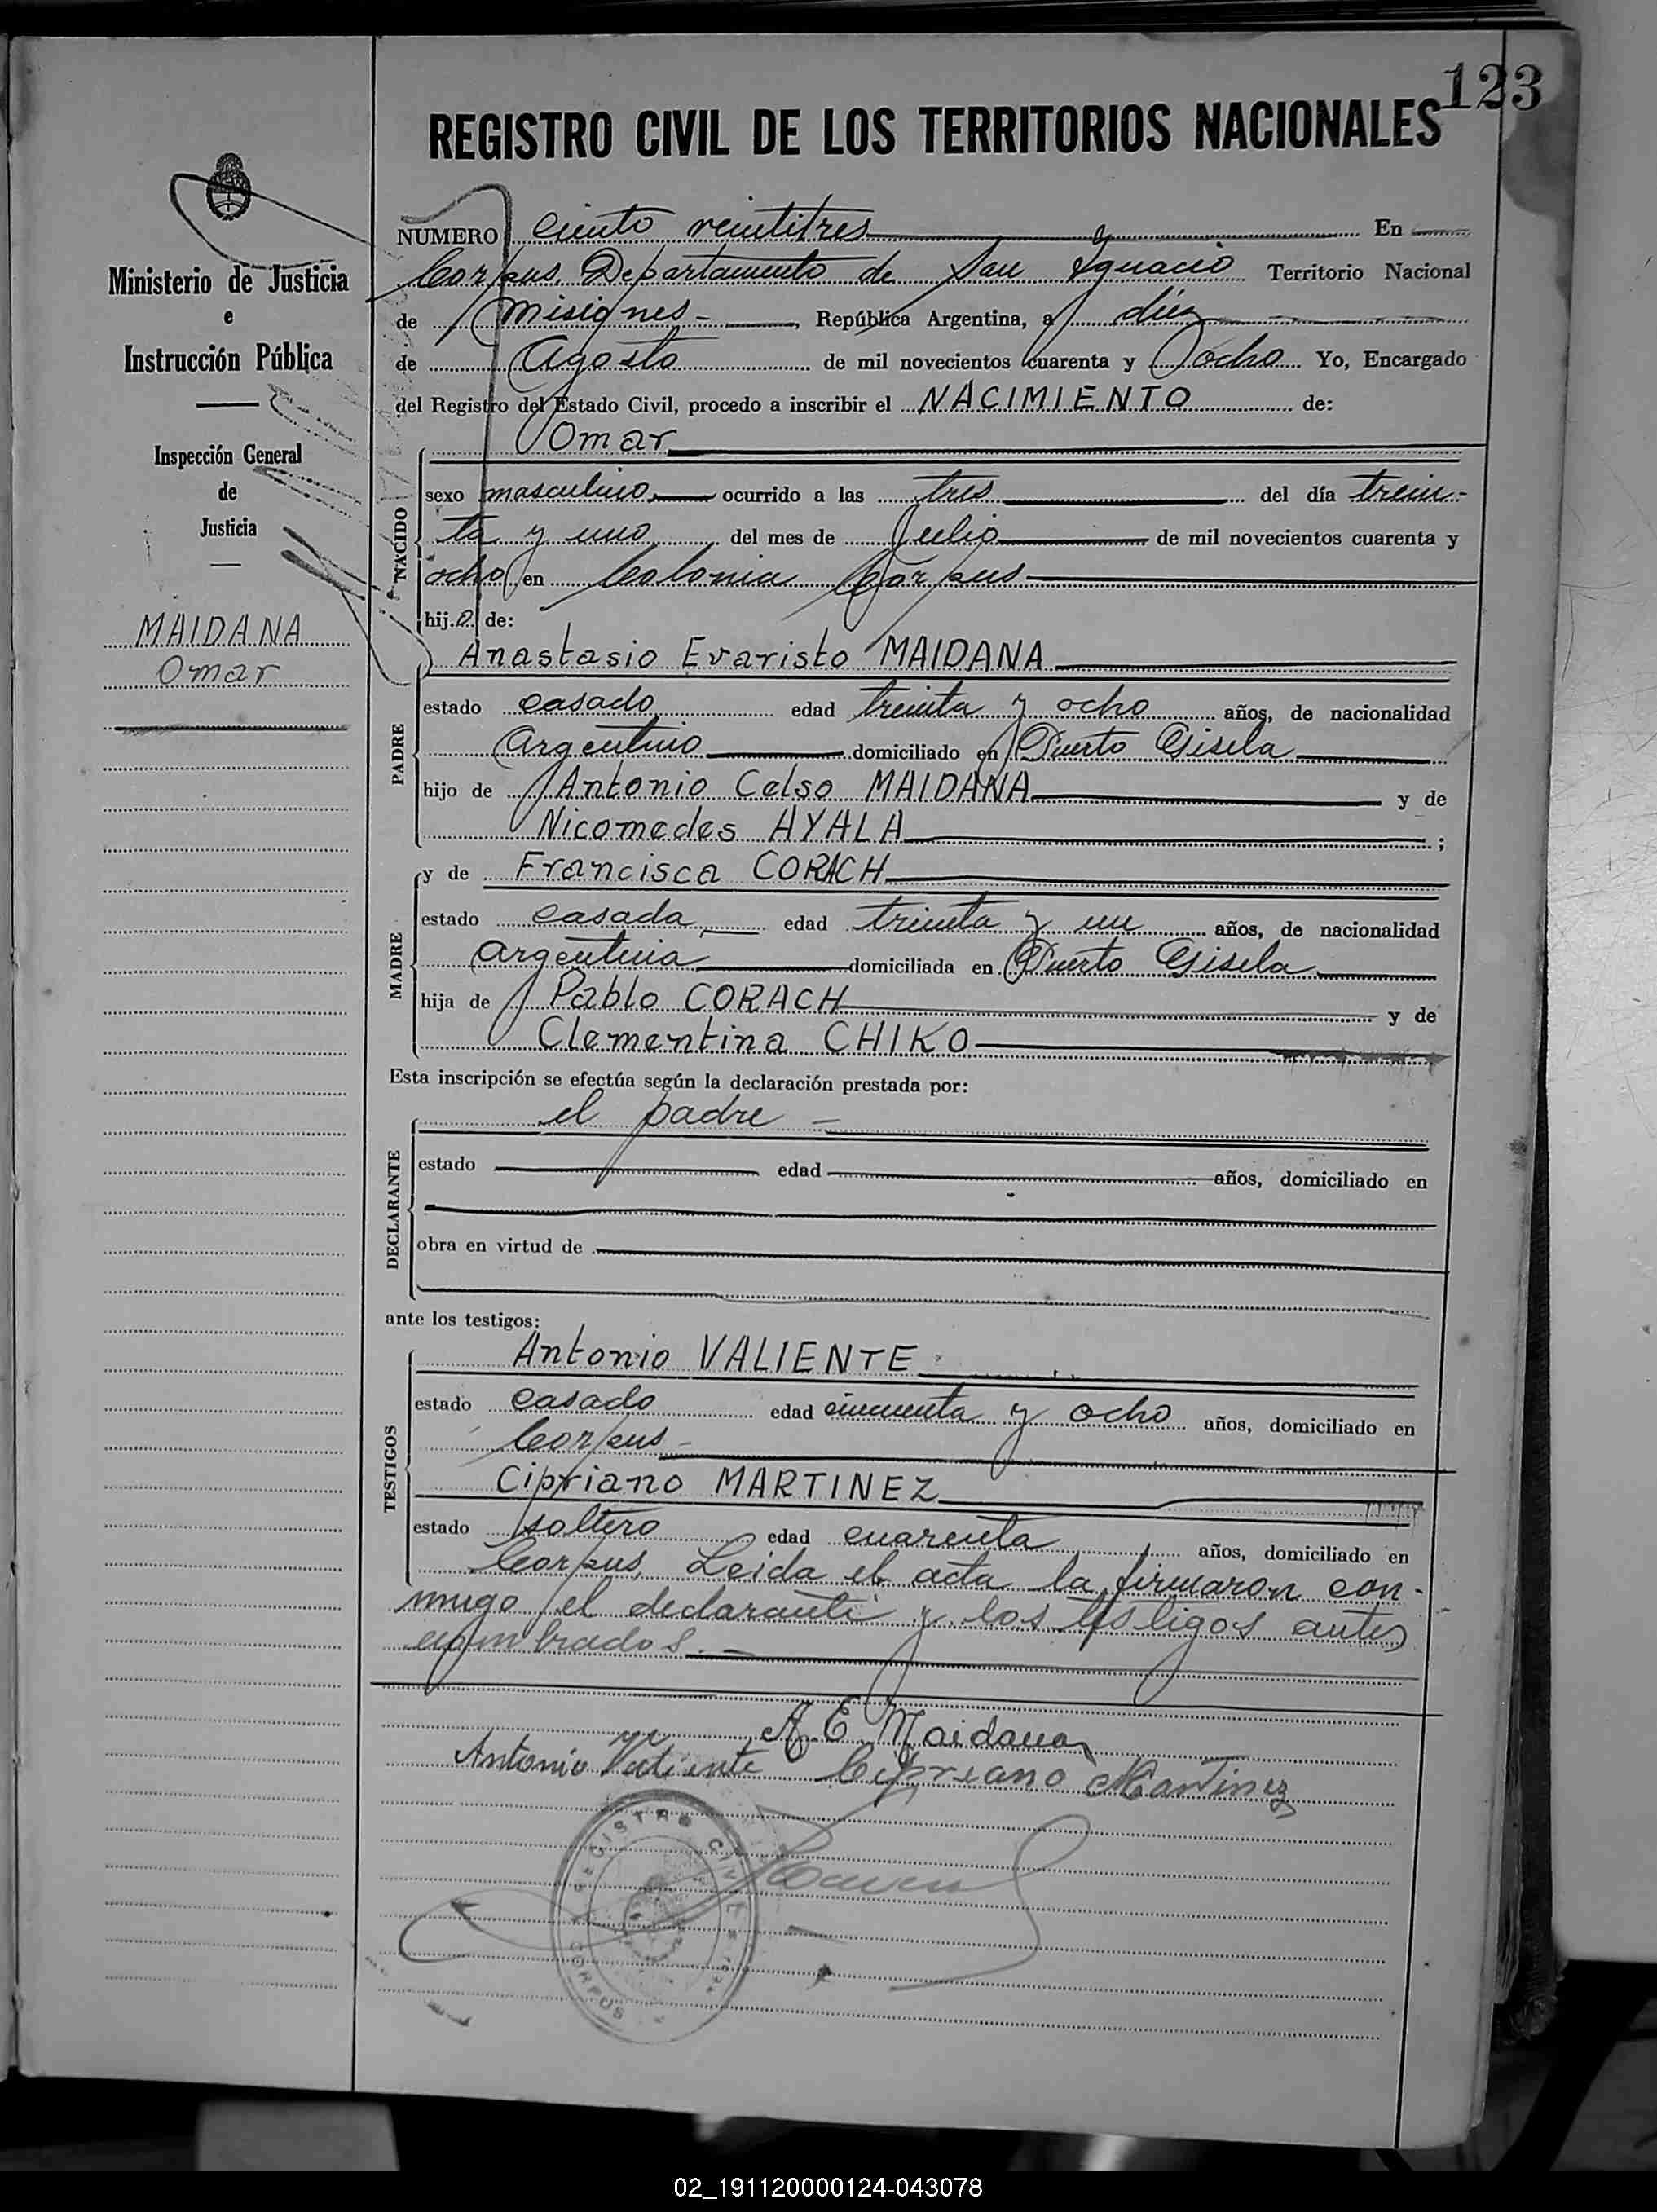 123
REGISTRO CIVIL DE LOS TERRITORIOS NACIONALES
Ministerio de Justicia
e
Instrucción Pública
Inspección General
de
Justicia
MAIDANA
Omar
NUMERO ciento veintitres En
Corpus, Departamento de San Ignacio Territorio Nacional
de Misiones - República Argentina, a diez
de Agosto de mil novecientos cuarenta y ocho Yo, Encargado
del Registro del Estado Civil, procedo a inscribir el NACIMIENTO de:
Omar
NACIDO
sexo masculino ocurrido a las tres del día trein-
ta y uno del mes de Julio de mil novecientos cuarenta y
ocho en Colonia Corpus
hijo de:
Anastasio Evaristo MAIDANA
PADRE
estado casado edad treinta y ocho años, de nacionalidad
Argentino domiciliado en Puerto Gisela
hijo de Antonio Celso MAIDANA y de
Nicomedes AYALA ;
y de Francisca CORACH
MADRE
estado casada edad treinta y un años, de nacionalidad
Argentina domiciliada en Puerto Gisela
hija de Pablo CORACH y de
Clementina CHIKO
Esta inscripción se efectúa según la declaración prestada por:
el padre -
DECLARANTE
estado edad años, domiciliado en
obra en virtud de
ante los testigos:
Antonio VALIENTE
TESTIGOS
estado casado edad cincuenta y ocho años, domiciliado en
Corpus -
Cipriano MARTINEZ
estado soltero edad cuarenta años, domiciliado en
Corpus, Leida el acta la firmaron con-
migo el declarante y los testigos antes
nombrados. -
A. E. Maidana
Antonio Valiente Cipriano Martinez
REGISTRO CIVIL
CORPUS
02_191120000124-043078